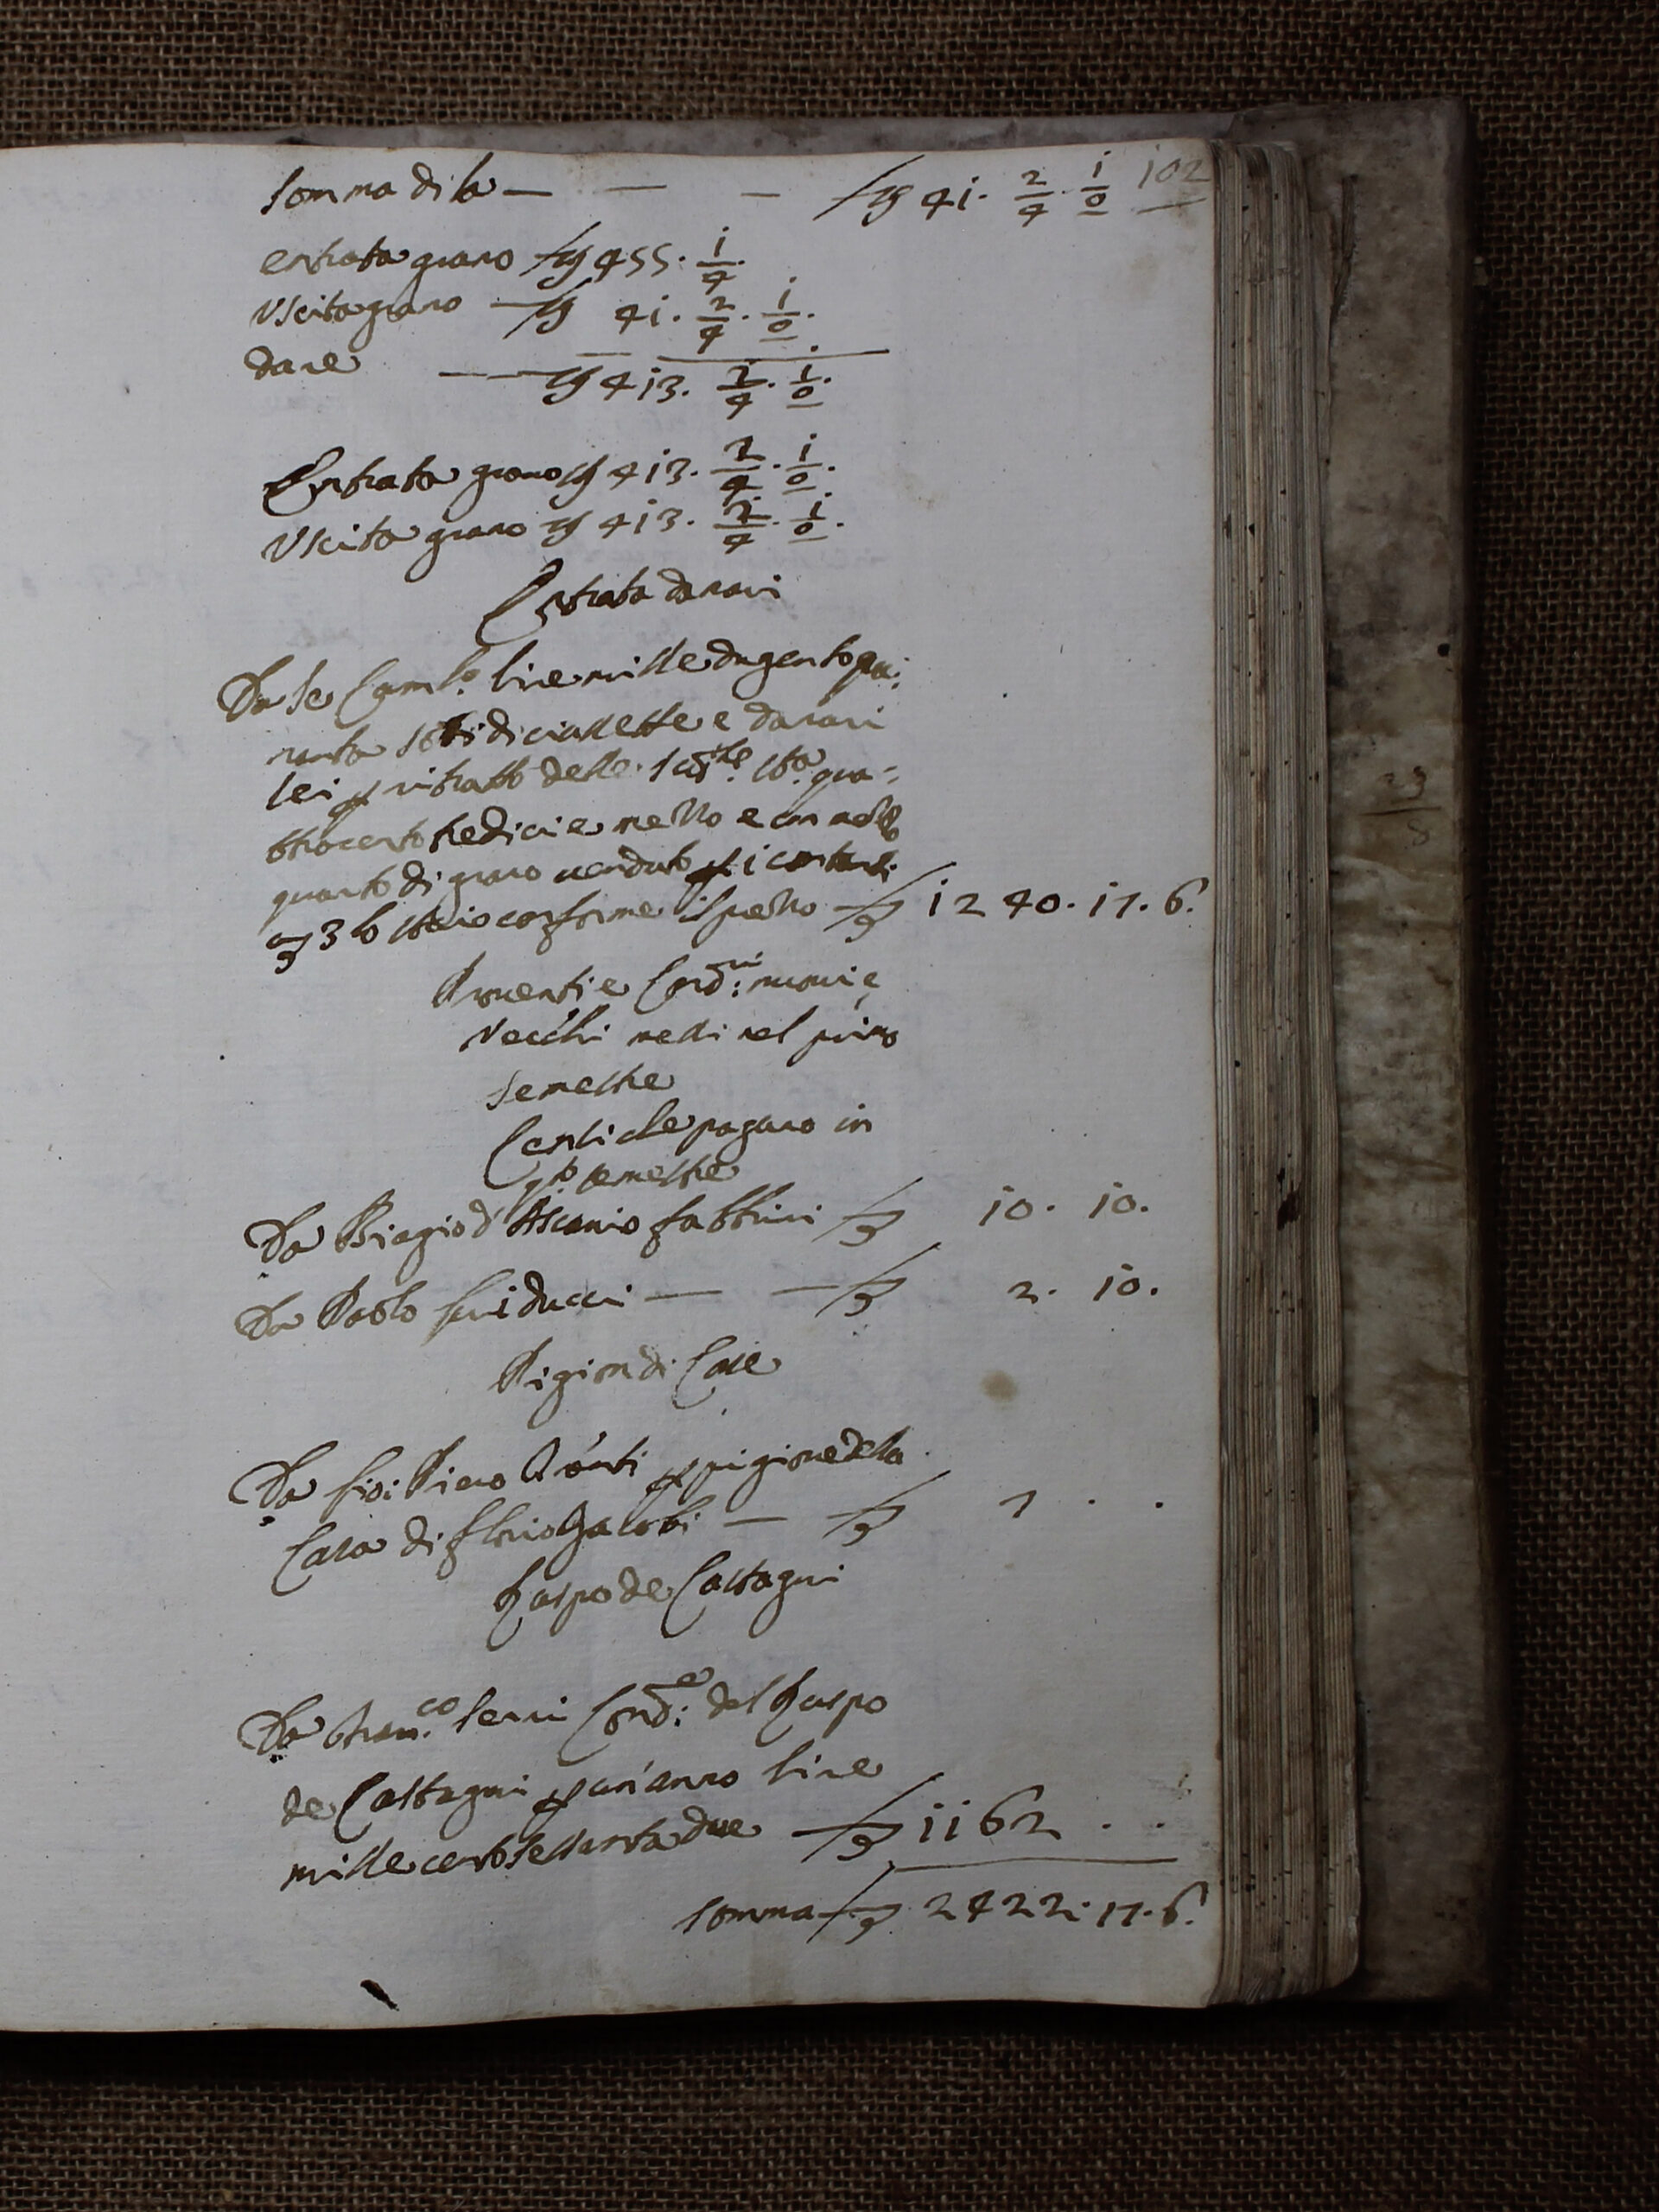 Somma di la — — — stª 41. 2/4. 1/0 102
entrata grano stª 455. 1/4.
Uscita grano — stª 41. 2/4. 1/0.
dare — stª 413. 2/4. 1/0.
Entrata grano stª 413. 2/4. 1/0.
Uscita grano stª 413. 2/4. 1/0.
Entrata danari
Da se Caml.º lire mille dugento qua:
ranta soldi diciassette e danari
sei p ritratto delle sudte stª qua=
ttrocento tredici e mezzo e un mezzo
quarto di grano venduto p i contanti
£ 3 lo staio conforme il prezzo £ 1240. 17. 6.
Proventi e Cond:ri nuovi e
Vecchi messi nel primo
semestre
Censi che pagano in
q.to semestre
Da Biagio d'Ascanio fabbrini £ 10. 10.
Da Paolo Guiducci — — £ 2. 10.
Pigion di Case
Da Piero Conti p pigione della
Casa di Jacobi — £ 7 . .
Haspo de Castagni
Da fran.co Serri Cond:e del Haspo
de Castagni p un'anno lire
mille cento sessanta due £ 1162 . .
Somma £ 2422. 17. 6.